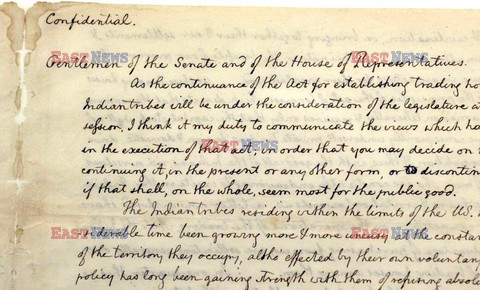 Confidential.
Gentlemen of the Senate and of the House of Representatives.
As the continuance of the Act for establishing trading ho
Indian tribes will be under the consideration of the legislature a
session, I think it my duty to communicate the views which ha
in the execution of that act; in order that you may decide on
continuing it, in the present or any other form, or discontin
if that shall, on the whole, seem most for the public good.
The Indian tribes residing within the limits of the U.S.
derable time been growing more & more uneasy at the consta
of the territory they occupy, altho' effected by their own voluntar
policy has long been gaining strength with them of refusing absol
EAST NEWS
EAST NEWS
EAST NEWS
EAST NEWS
EAST NEWS
EAST NEWS